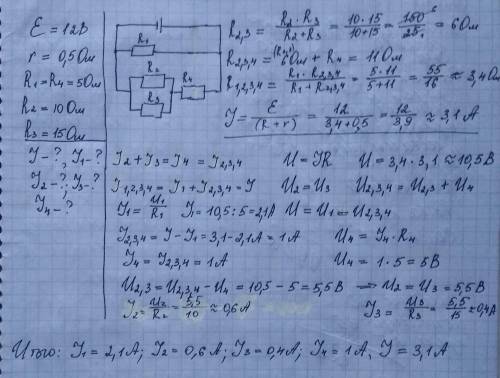 Ɛ = 12В
r = 0,5 Ом
R₁ = R₄ = 5 Ом
R₂ = 10 Ом
R₃ = 15 Ом
J - ?, J₁ - ?
J₂ - ?, J₃ - ?
J₄ - ?
R₁
R₂
R₃
R₄
R₂,₃ = R₂ · R₃ / R₂ + R₃ = 10 · 15 / 10 + 15 = 150 / 25 = 6 Ом
R₂,₃,₄ = 6 Ом + R₄ = 11 Ом
R₁,₂,₃,₄ = R₁ · R₂,₃,₄ / R₁ + R₂,₃,₄ = 5 · 11 / 5 + 11 = 55 / 16 ≈ 3,4 Ом
J = Ɛ / (R + r) = 12 / 3,4 + 0,5 = 12 / 3,9 ≈ 3,1 А
J₂ + J₃ = J₄ = J₂,₃,₄ U = JR U = 3,4 · 3,1 ≈ 10,5 В
J₁,₂,₃,₄ = J₁ + J₂,₃,₄ = J U₂ = U₃ U₂,₃,₄ = U₂,₃ + U₄
J₁ = U₁ / R₁ J₁ = 10,5 : 5 = 2,1 А U = U₁ = U₂,₃,₄
J₂,₃,₄ = J - J₁ = 3,1 - 2,1 А = 1 А U₄ = J₄ · R₄
J₄ = J₂,₃,₄ = 1 А U₄ = 1 · 5 = 5 В
U₂,₃ = U₂,₃,₄ - U₄ = 10,5 - 5 = 5,5 В ⇒ U₂ = U₃ = 5,5 В
J₂ = U₂ / R₂ = 5,5 / 10 ≈ 0,6 А J₃ = U₃ / R₃ = 5,5 / 15 ≈ 0,4 А
Итого: J₁ = 2,1 А; J₂ = 0,6 А; J₃ = 0,4 А; J₄ = 1 А, J = 3,1 А